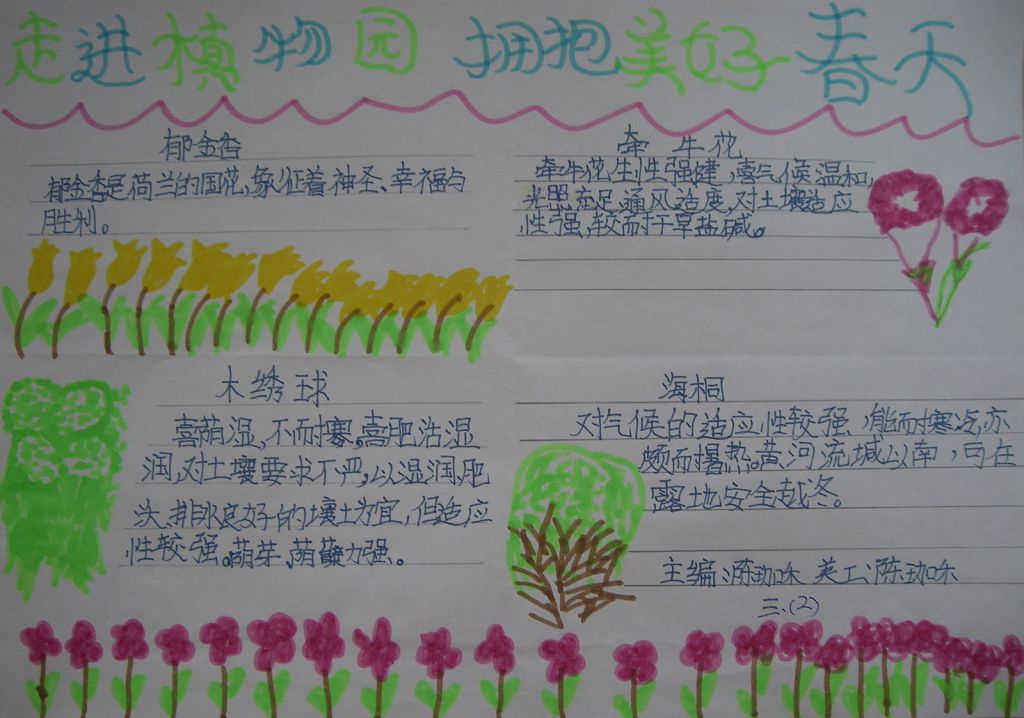 走进植物园 拥抱美好春天
郁金香
郁金香是荷兰的国花,象征着神圣、幸福与
胜利。
牵牛花
牵牛花生性强健,喜气候温和,
光照充足,通风适度,对土壤适应
性强,较耐干旱盐碱。
木绣球
喜荫湿、不耐寒。喜肥沾湿
润,对土壤要求不严,以湿润、肥
沃、排水良好的壤土为宜,但适应
性较强。萌芽、萌蘖力强。
海桐
对气候的适应性较强,能耐寒冷,亦
颇耐暑热。黄河流域以南,可在
露地安全越冬。
主编:陈珈 美工:陈珈
三.(2)